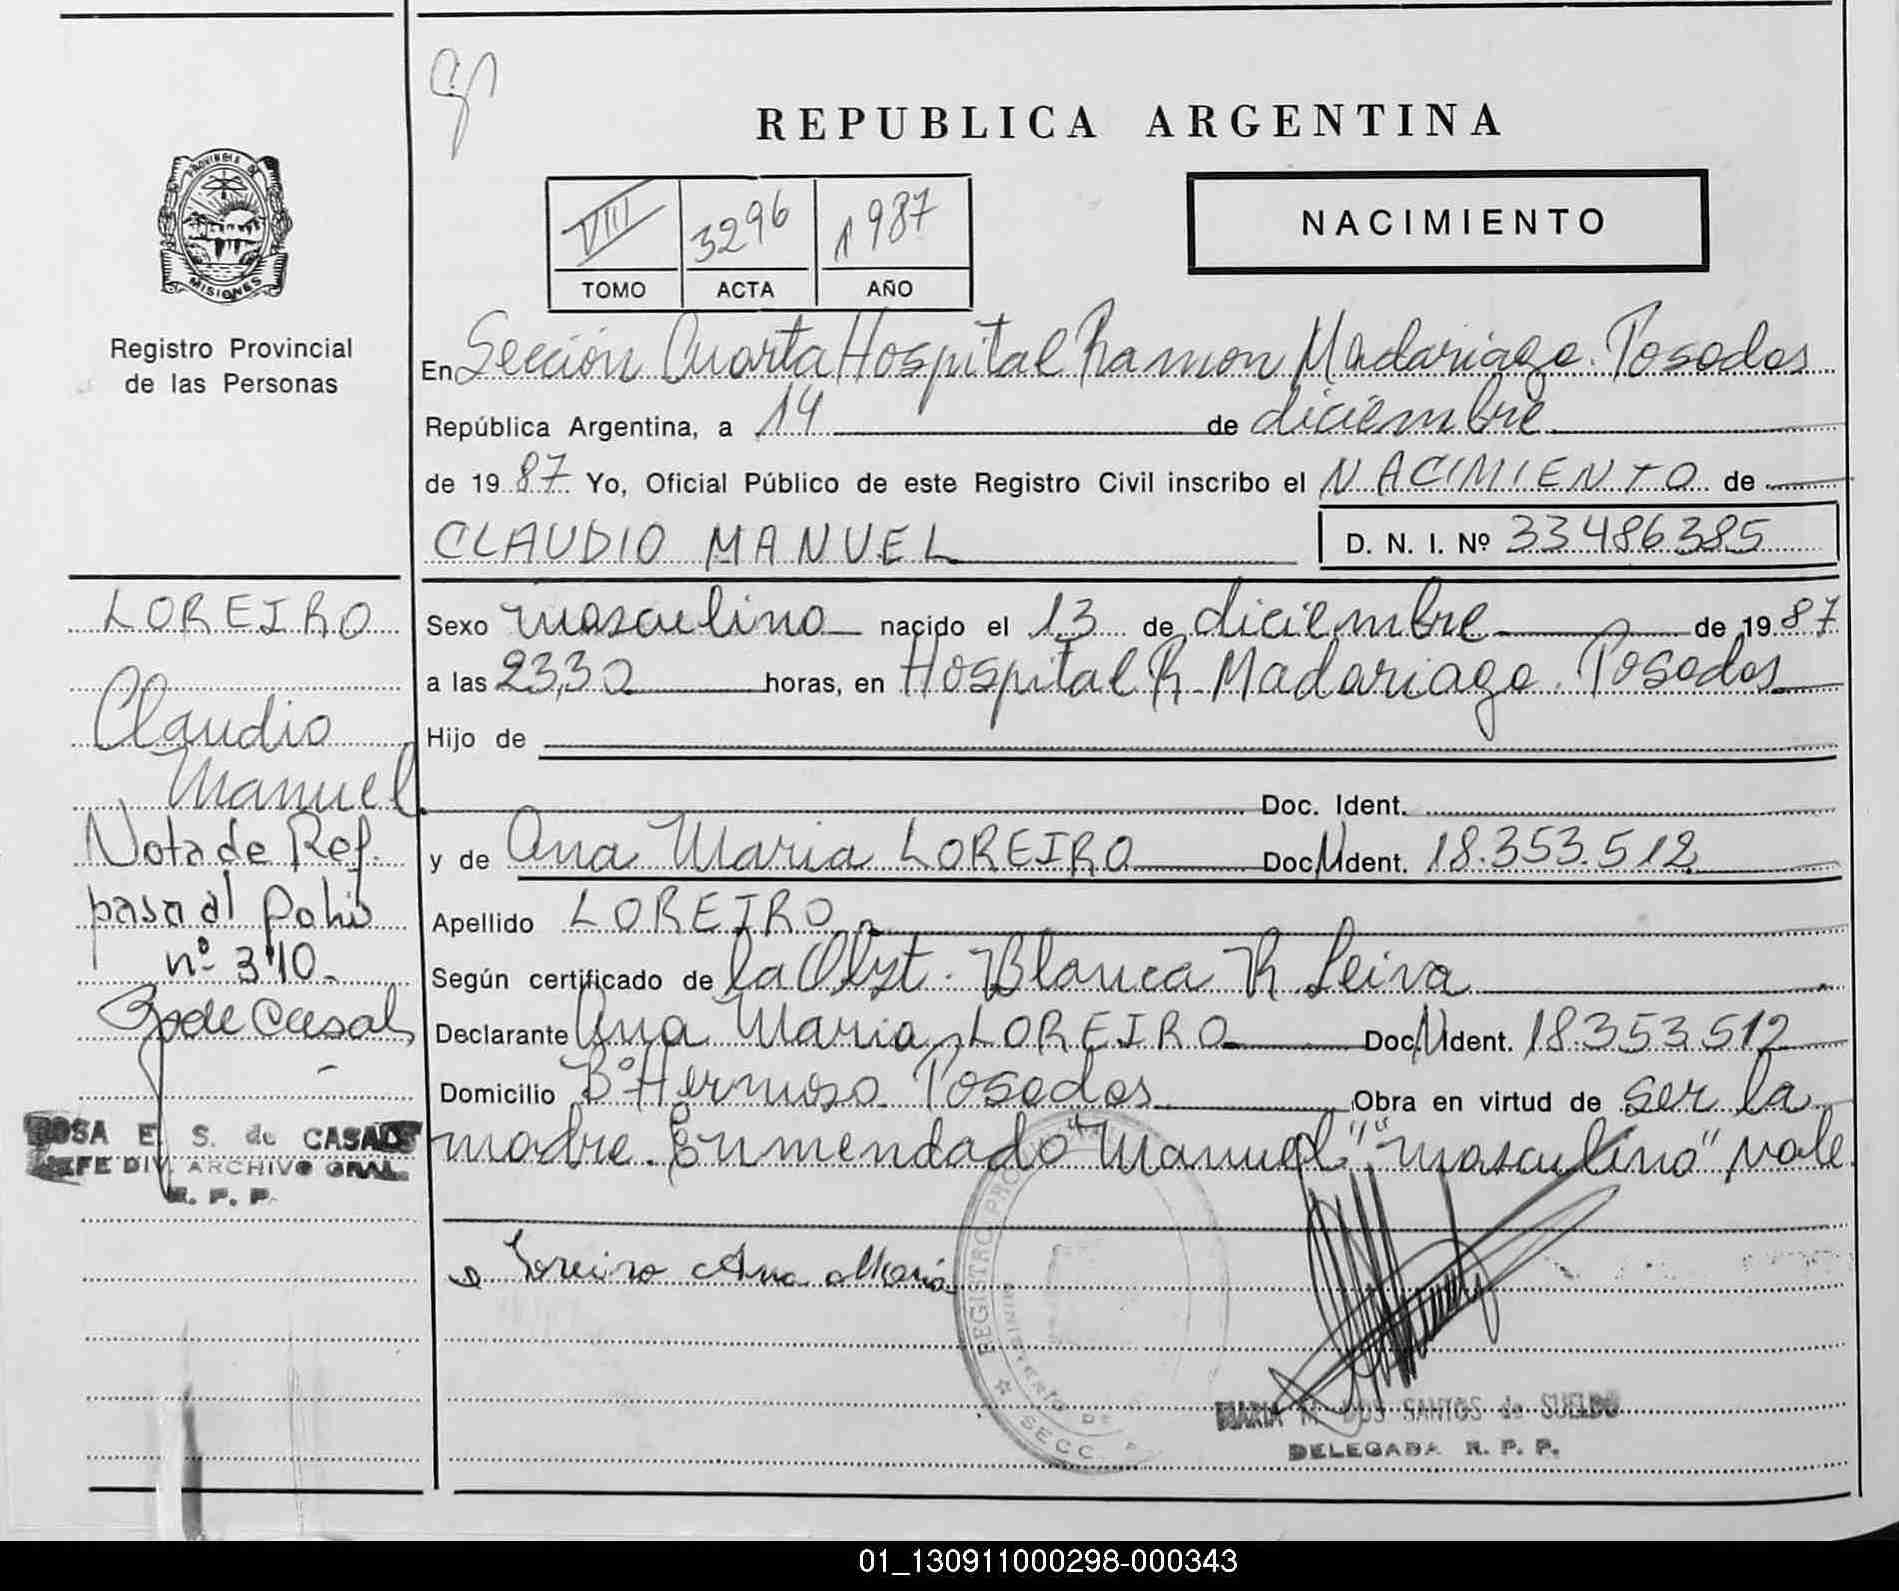 REPUBLICA ARGENTINA
PROVINCIA DE
MISIONES
Registro Provincial
de las Personas
VIII 3296 1987
TOMO ACTA AÑO
NACIMIENTO
En Sección Cuarta Hospital Ramon Madariaga. Posadas
República Argentina, a 14 de diciembre
de 1987 Yo, Oficial Público de este Registro Civil inscribo el NACIMIENTO de
CLAUDIO MANUEL D. N. I. Nº 33486385
Sexo masculino nacido el 13 de diciembre de 1987
a las 23,30 horas, en Hospital R. Madariaga. Posadas
Hijo de
Doc. Ident.
y de Ana Maria LOREIRO Doc. Ident. 18.353.512
Apellido LOREIRO
Según certificado de la Obst. Blanca R Leiva
Declarante Ana Maria LOREIRO Doc. Ident. 18.353.512
Domicilio Bº Hermoso Posadas Obra en virtud de ser la
madre. Enmendado "Manuel" "masculino" vale
Loreiro Ana Maria
MARIA M. DOS SANTOS de SUELDO
DELEGADA R. P. P.
LOREIRO
Claudio
Manuel
Nota de Ref.
pasa al folio
nº 310.
ROSA E. S. de CASALS
JEFE DIV. ARCHIVO GRAL.
R. P. P.
01_130911000298-000343